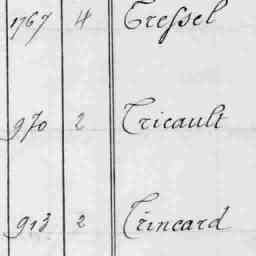 1767 4 Tressel
970 2 Tricault
913 2 Trincard